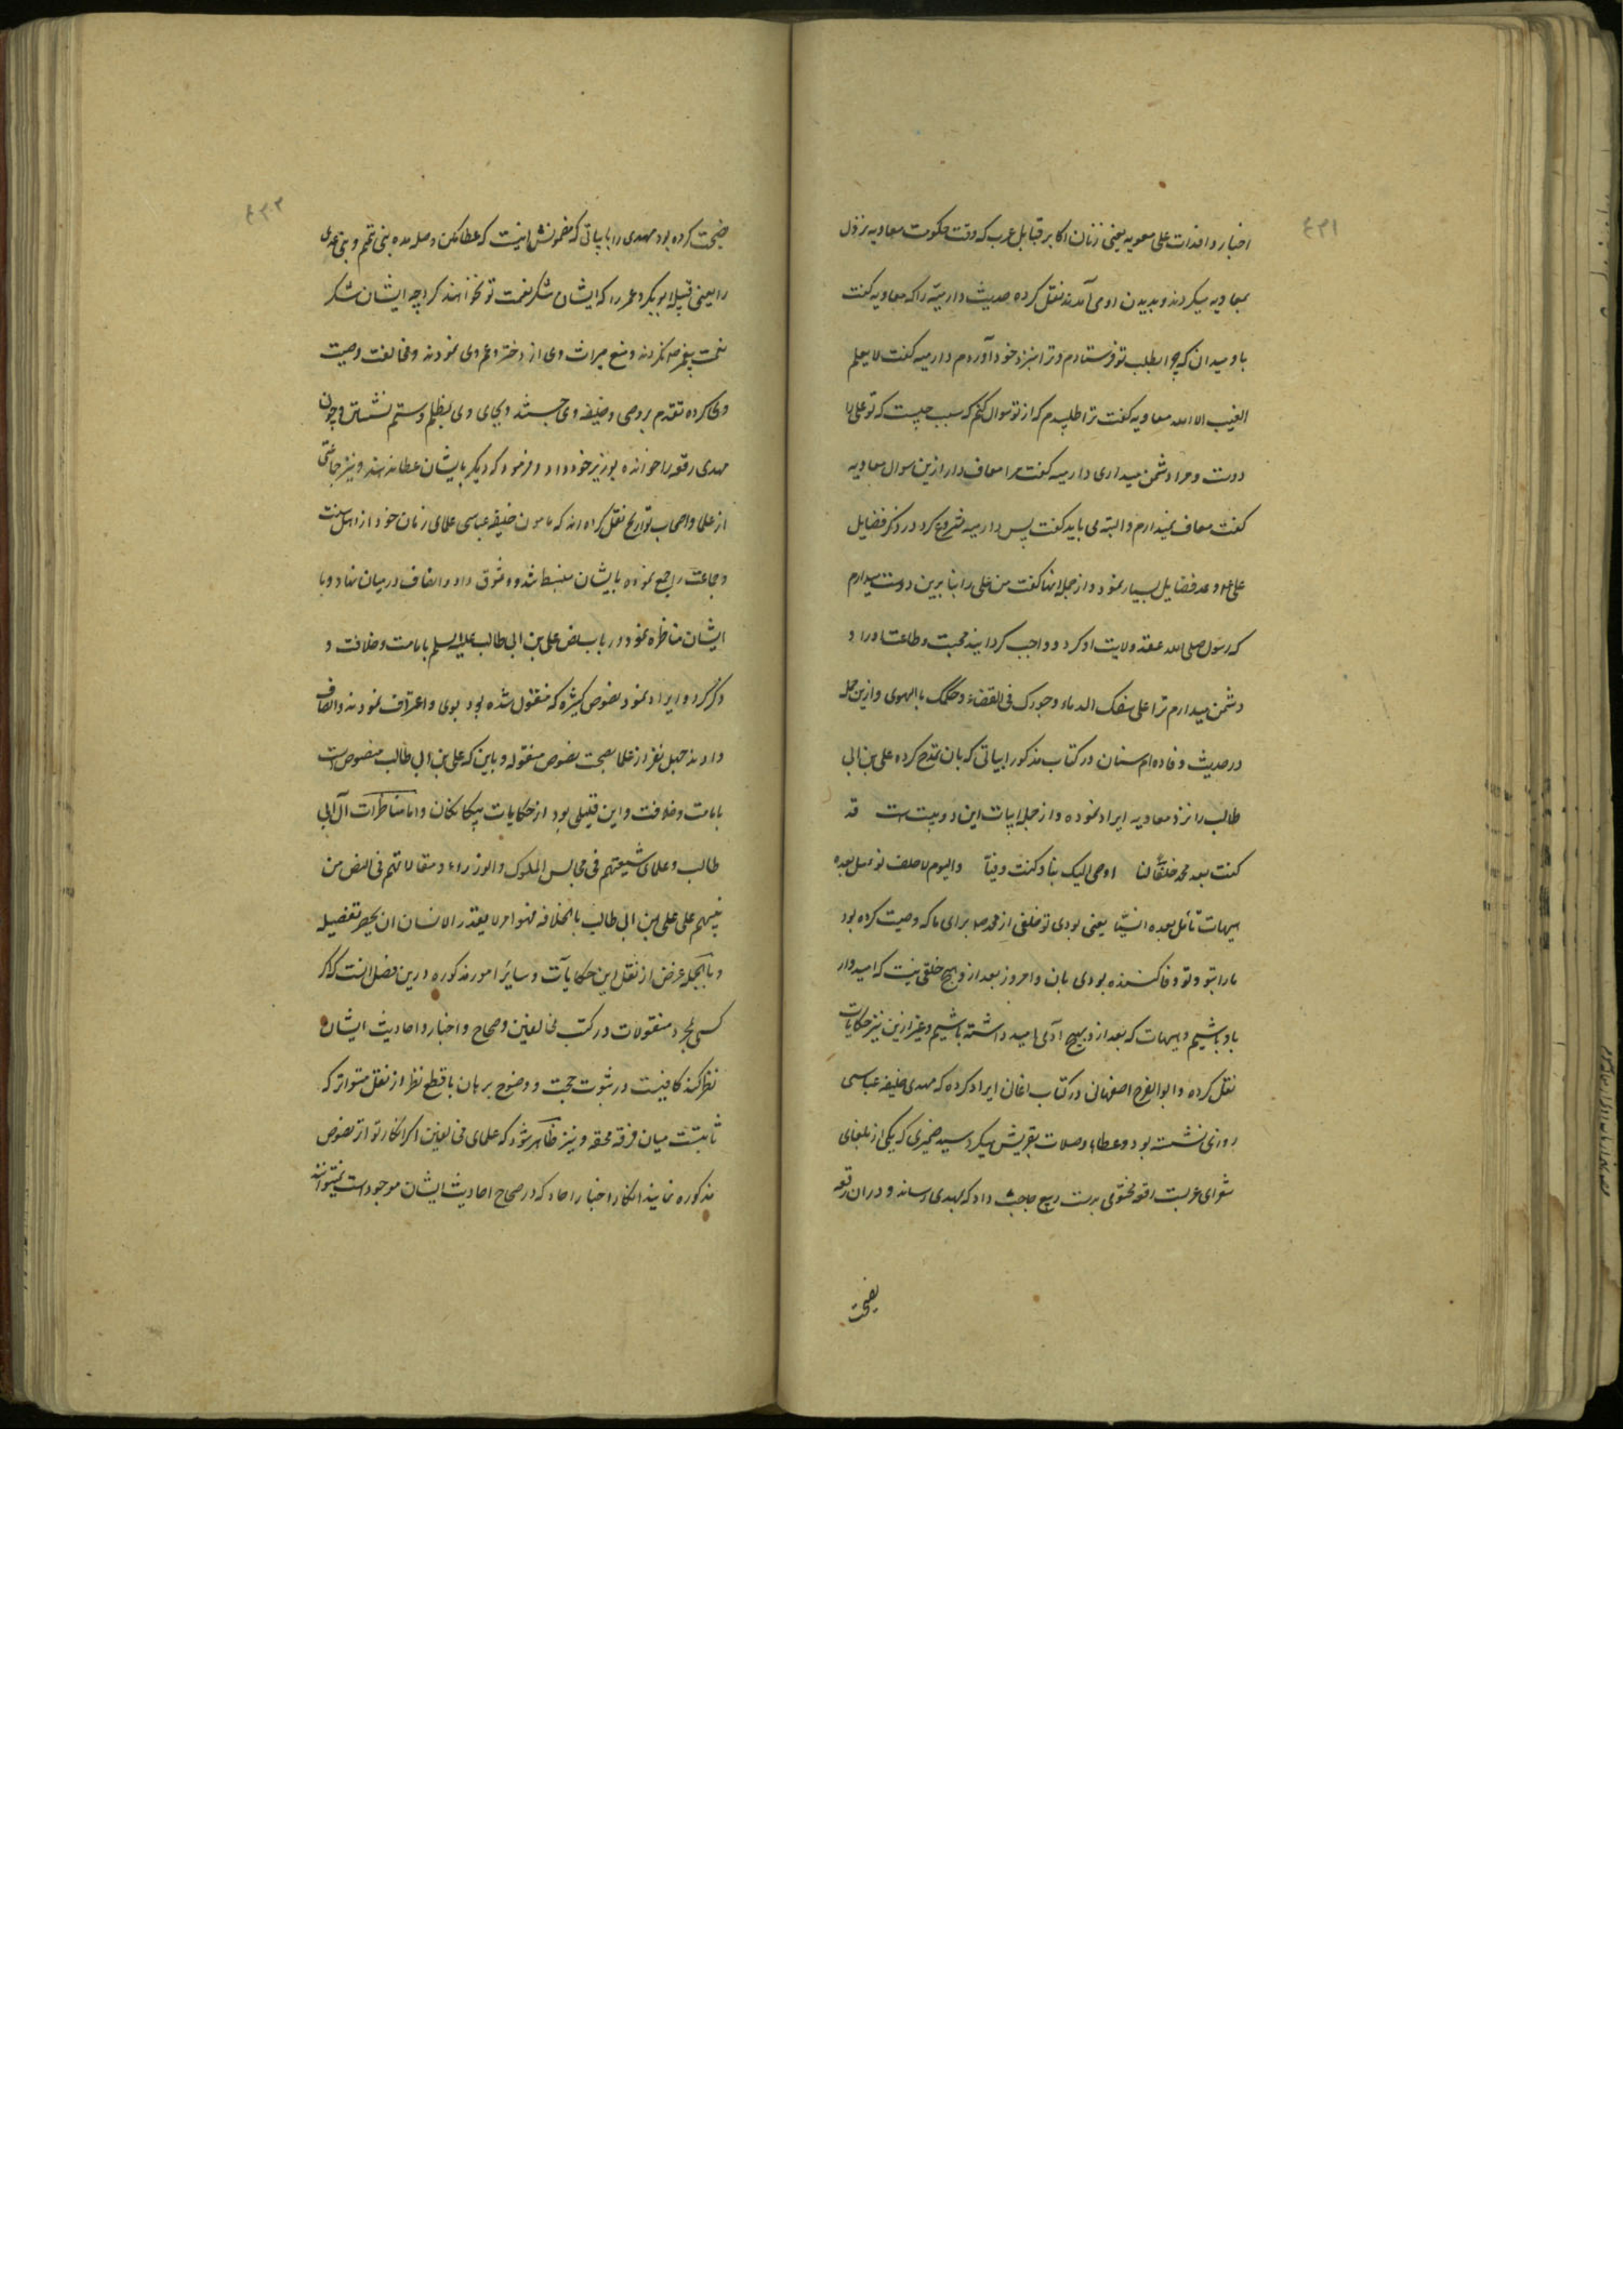 ٤٣١
اخبار وافدات علی معویه یعنی زنان اکابر قبایل عرب که وقت حکومت معاویه نزول
بمعاویه میکردند و بدیدن او می آمدند نقل کرده حدیث دارمیه را که معاویه گفت
با و میدان که چرا بطلب تو فرستادم و ترا بنزد خود آوردم دارمیه گفت لا یعلم
الغیب الا الله معاویه گفت ترا طلبیدم که از تو سوال کنم که سبب چیست که تو علی را
دوست و مرا دشمن میداری دارمیه گفت مرا معاف دار ازین سوال معاویه
گفت معاف نمیدارم و البته می باید گفت پس دارمیه شروع کرد در ذکر فضایل
علی و عد فضایل بسیار نمود و از جمله انها گفت من علی را بنا برین دوست میدارم
که رسول صلی الله عقد ولایت او کرد و واجب کردانید محبت و طاعت او را و
دشمن میدارم ترا علی سفک الدماء و جورک فی القضاء و حکمک بالهوی و ازین جمله
در حدیث وفاده ام سنان در کتاب مذکور ابیاتی که بان مدح کرده علی بن ابی
طالب را نزد معاویه ایراد نموده و از جمله ابیات این دو بیت است قد
کنت بعد محمد خلفا لنا اوصی الیک بنا و کنت وفیا والیوم لا خلف نومل بعده
هیهات نامل بعده انسیا یعنی بودی تو خلفی از محمد ص برای ما که وصیت کرده بود
ما را بتو و تو وفا کننده بودی بان و امروز بعد از و هیچ خلفی نیست که امیدوار
باو باشیم و هیهات که بعد از و بهیچ آدمی امید داشته باشیم و غیر ازین نیز حکایات
نقل کرده و ابوالفرج اصفهانی در کتاب اغانی ایراد کرده که مهدی خلیفه عباسی
روزی نشسته بود و عطاها و صلات بقریش میکرد سید حمیری که یکی از بلغای
شعرای عربست رقعه مختومی بدست ربیع حاجب داد که بمهدی رساند و در ان رقعه
نصیحت
٤٣٢
نصیحت کرده بود مهدی را بابیاتی که مضمونش اینست که عطا مکن و صله مده بنی تیم و بنی عدی
را یعنی قبیله ابوبکر و عمر را که ایشان شکر نعمت تو نخواهند کرد چه ایشان شکر
نعمت پیغمبر ص نکردند و منع میراث وی از دختر و عم وی نمودند و مخالفت وصیت
وی کرده تقدم بر وصی و خلیفه وی جستند و بجای وی بظلم و ستم نشستن و چون
مهدی رقعه را خوانده بوزیر خود داد و فرمود که دیگر بایشان عطا ندهند و نیز جماعتی
از علما و اصحاب تواریخ نقل کرده اند که مامون خلیفه عباسی علمای زمان خود از اهل سنت
و جماعت را جمع نموده بایشان منبسط شد و وثوق داد و انصاف در میان نهاد و با
ایشان مناظره نمود در باب نص علی بن ابی طالب علیه السلم بامامت و خلافت و
ذکر کرد و ایراد نمود نصوص کثیره که منقول شده بوی و اعتراف نمودند و انصاف
دادند چهل نفر از علما بصحت نصوص منقوله و باین که علی بن ابی طالب منصوص است
بامامت و خلافت و این قلیلی بود از حکایات بیگانگان و اما مناظرات آل ابی
طالب و علمای شیعتهم فی مجالس الملوک والوزراء و مقالاتهم فی النص من
نبیهم علی علی بن ابی طالب بالخلافه فهو امر لا یقدر الانسان ان یحصر تفصیله
و بالجمله غرض از نقل این حکایات و سائر امور مذکوره درین فصل انست که اگر
کسی بمجرد منقولات در کتب مخالفین و صحاح و اخبار و احادیث ایشان
نظر کند کافیست در ثبوت حجت و وضوح برهان با قطع نظر از نقل متواتر که
ثابتست میان فرقه محقه و نیز ظاهر شود که علمای مخالفین اگر انکار تواتر نصوص
مذکوره نمایند انکار اخبار احاد که در صحاح احادیث ایشان موجود است نمیتوانند